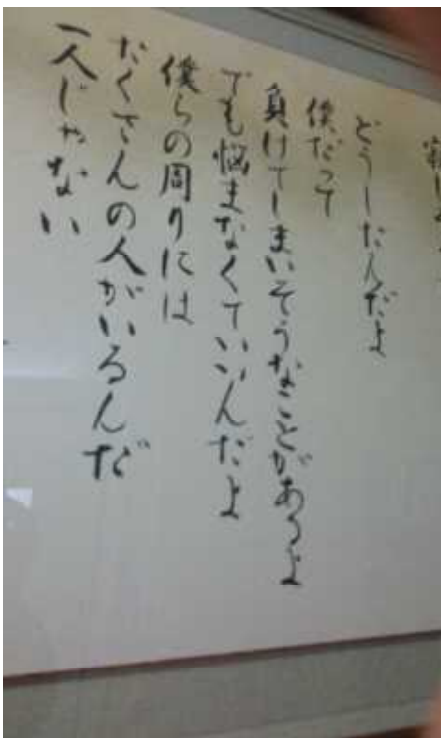 どうしたんだよ
僕だって
負けてしまいそうなことがあるよ
でも悩まなくていいんだよ
僕らの周りには
たくさんの人がいるんだ
一人じゃない